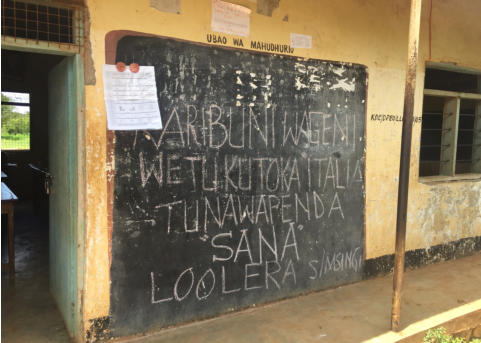 UBAO WA MAHUDHURIO
KARIBUNI WAGENI
WETU KUTOKA ITALIA
TUNAWAPENDA
"SANA"
LOOLERA S/MSINGI